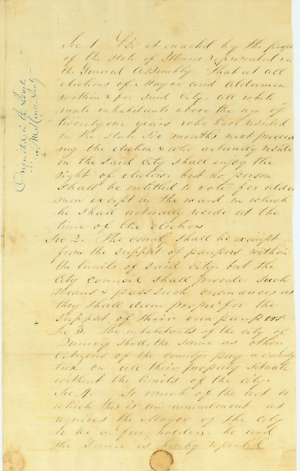 Sec 1 Be it enacted by the people
of the State of Illinois represented in
the General Assembly. That at all
elections of Mayor and Aldermen
within & for said City. All white
male inhabitants above the age of
twentyone years who have resided
in the state Six months next preced
ing the election & who actually reside
in the said City shall enjoy the
right of election, but no person
shall be entitled to vote for alder
men except in the ward in which
he shall actually reside at the
time of the election
Sec 2. The county shall be exempt
from the support of paupers within
the limits of said city. but the
City Council shall provide such
means & pass such ordinances as
they shall deem proper for the
support of their own paupers
Sec 3 the inhabitants of the city of
Quincy shall the same as other
Citizens of the county pay a county
tax on all their property situate
without the limits of the city.
Sec 4. So much of the act to
which this is an amendment as
requires the Mayor of the city
to be a freeholder be and
the same is hereby repealed
in the Senate